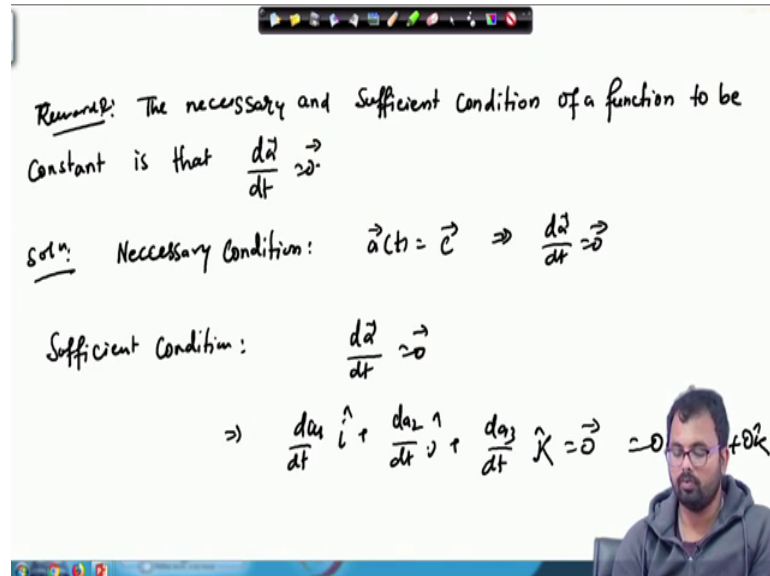 Remark 2: The necessary and Sufficient Condition of a function to be
Constant is that da⃗/dt = 0⃗.
Solⁿ: Neccessary Condition: a⃗(t) = c⃗ ⇒ da⃗/dt = 0⃗
Sufficient Condition: da⃗/dt = 0⃗
⇒ da₁/dt î + da₂/dt ĵ + da₃/dt k̂ = 0⃗ = 0 +0k̂